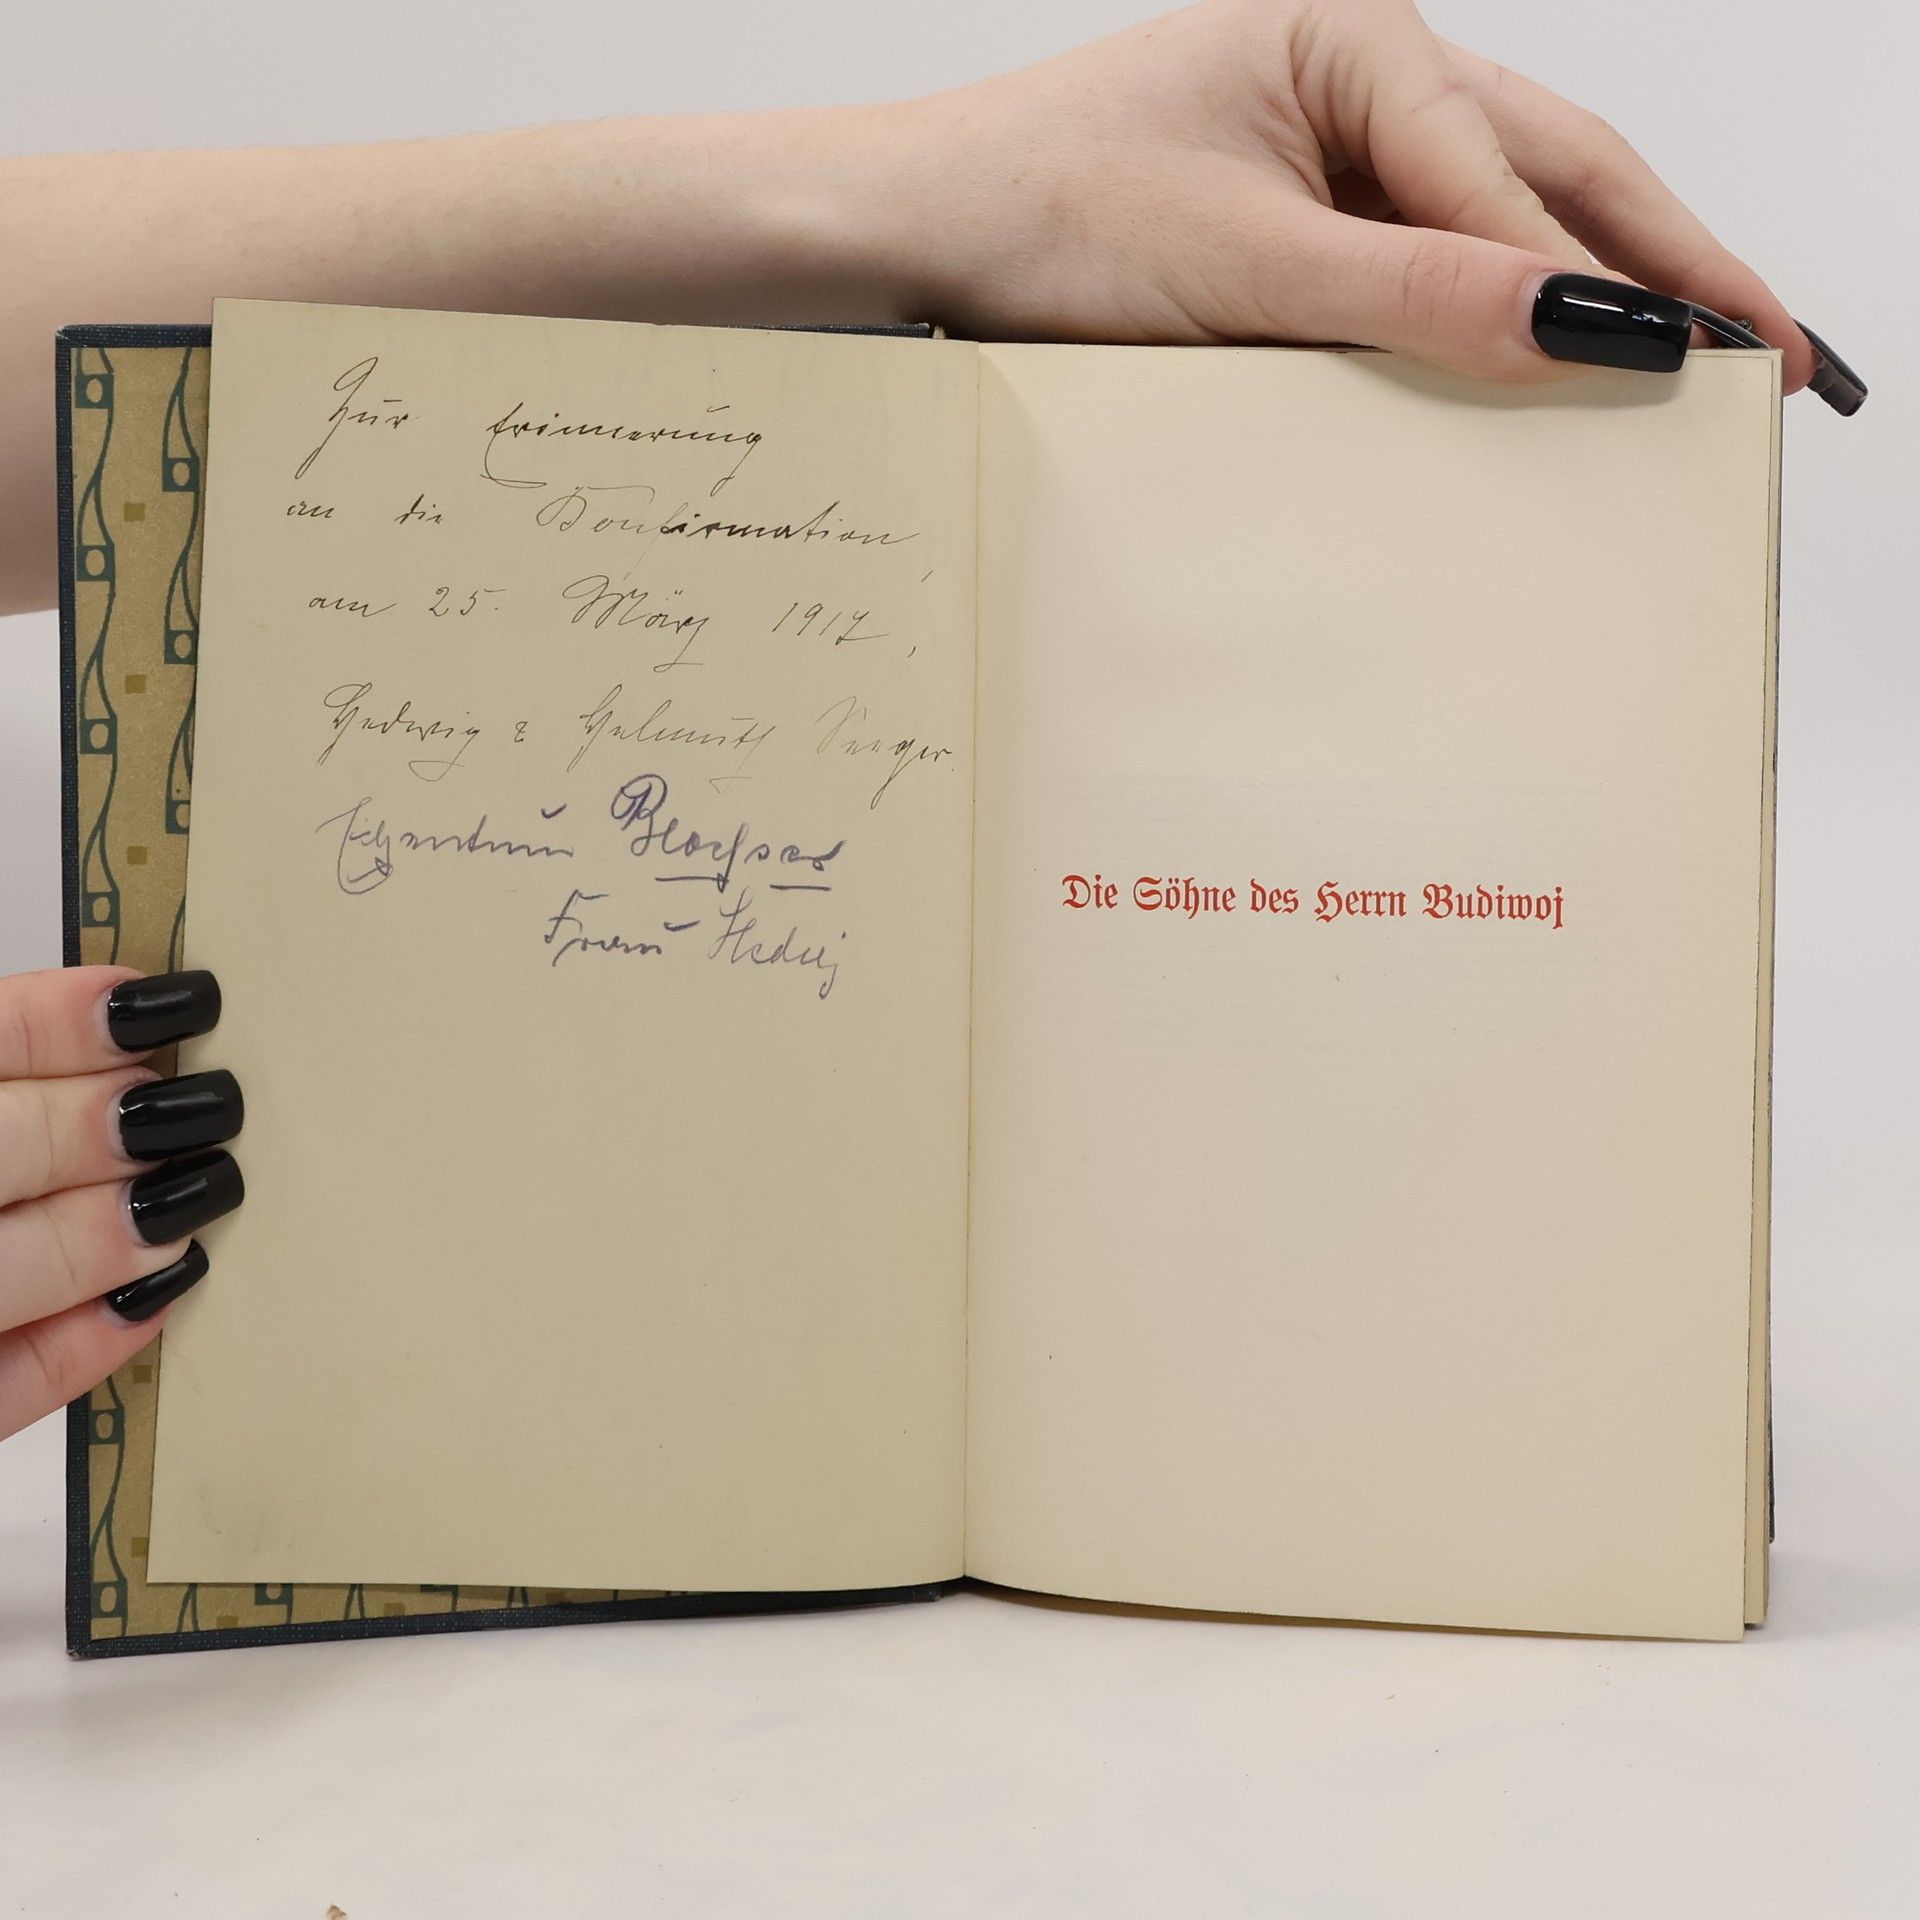 Zur Erinnerung
an die Konfirmation,
am 25. März 1917,
Hedwig & Helmuth Seeger.
Eigentum
Frau Hedwig
Die Söhne des Herrn Budiwoj